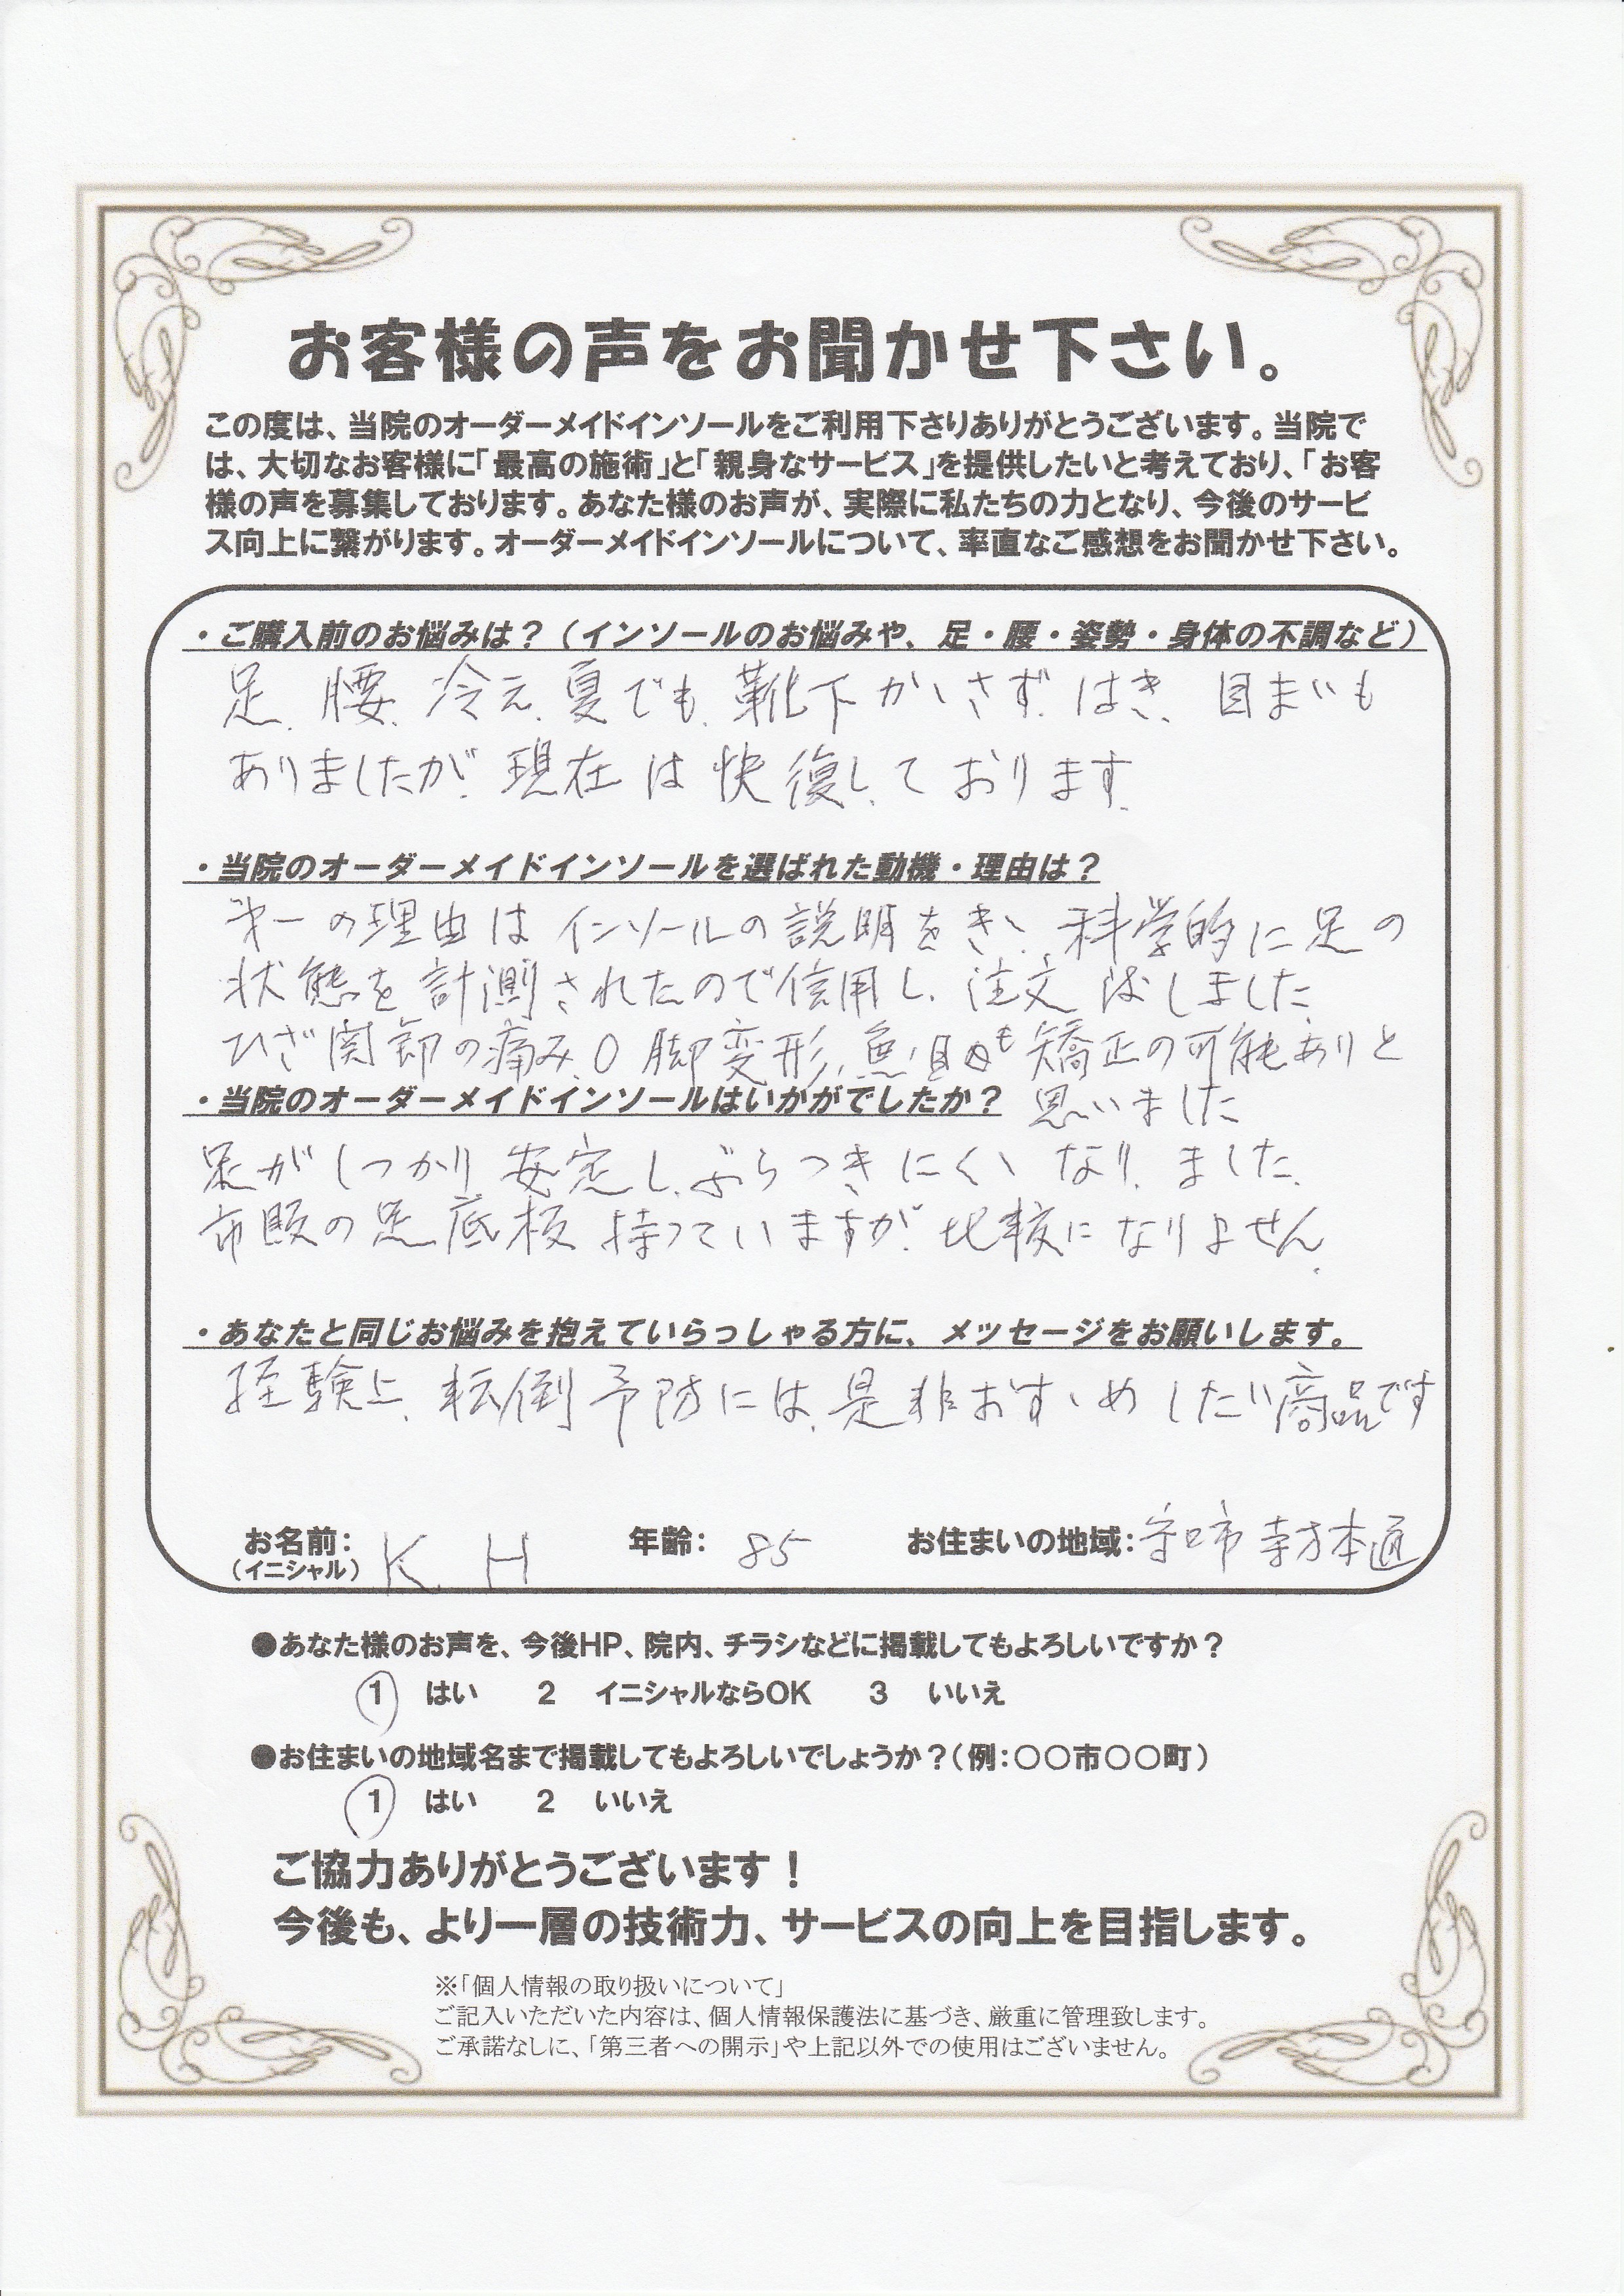 お客様の声をお聞かせ下さい。
この度は、当院のオーダーメイドインソールをご利用下さりありがとうございます。当院で
は、大切なお客様に「最高の施術」と「親身なサービス」を提供したいと考えており、「お客
様の声を募集しております。あなた様のお声が、実際に私たちの力となり、今後のサービ
ス向上に繋がります。オーダーメイドインソールについて、率直なご感想をお聞かせ下さい。
・ご購入前のお悩みは？（インソールのお悩みや、足・腰・姿勢・身体の不調など）
足、腰、冷え、夏でも、靴下かゝさず、はき、目まいも
ありましたが、現在は快復しております。
・当院のオーダーメイドインソールを選ばれた動機・理由は？
㐧一の理由はインソールの説明をきゝ、科学的に足の
状態を計測されたので信用し、注文しました。
ひざ関節の痛み、O脚変形、魚の目も矯正の可能ありと
思いました
・当院のオーダーメイドインソールはいかがでしたか？
足がしっかり安定し、ぶらつきにくゝなりました。
市販の足底板持っていますが、比較になりません。
・あなたと同じお悩みを抱えていらっしゃる方に、メッセージをお願いします。
経験上、転倒予防には、是非おすゝめしたい商品です
お名前：K H 年齢：85 お住まいの地域：守口市寺方本通
（イニシャル）
●あなた様のお声を、今後HP、院内、チラシなどに掲載してもよろしいですか？
1 はい 2 イニシャルならOK 3 いいえ
●お住まいの地域名まで掲載してもよろしいでしょうか？（例：〇〇市〇〇町）
1 はい 2 いいえ
ご協力ありがとうございます！
今後も、より一層の技術力、サービスの向上を目指します。
※「個人情報の取り扱いについて」
ご記入いただいた内容は、個人情報保護法に基づき、厳重に管理致します。
ご承諾なしに、「第三者への開示」や上記以外での使用はございません。